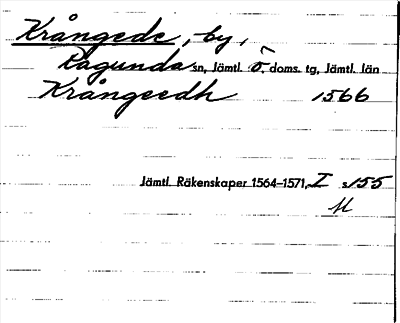 Krångede, by,
Ragunda sn, Jämtl. ö. doms. tg, Jämtl. län
Krångeedh 1566
Jämtl. Räkenskaper 1564-1571, I s 155